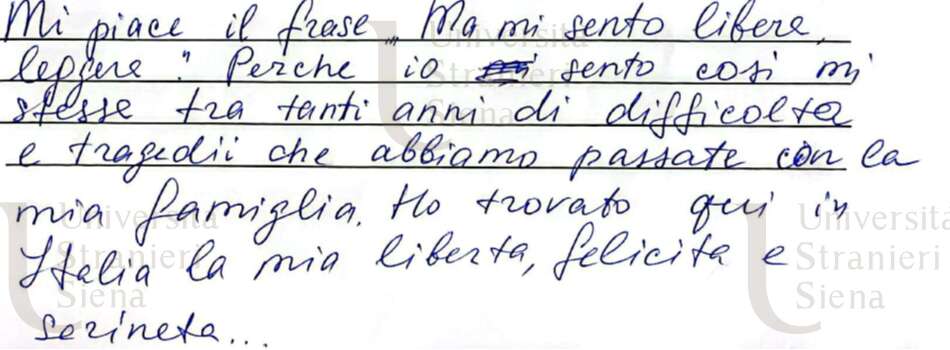 Mi piace il frase „Ma mi sento libere,
leggere". Perche io sento cosi mi
stesse tra tanti anni di difficolta
e tragedii che abbiamo passate con la
mia famiglia. Ho trovato qui in
Italia la mia liberta, felicita e
serineta...
Università
Stranieri
Siena
Università
Stranieri
Siena
Università
Stranieri
Siena